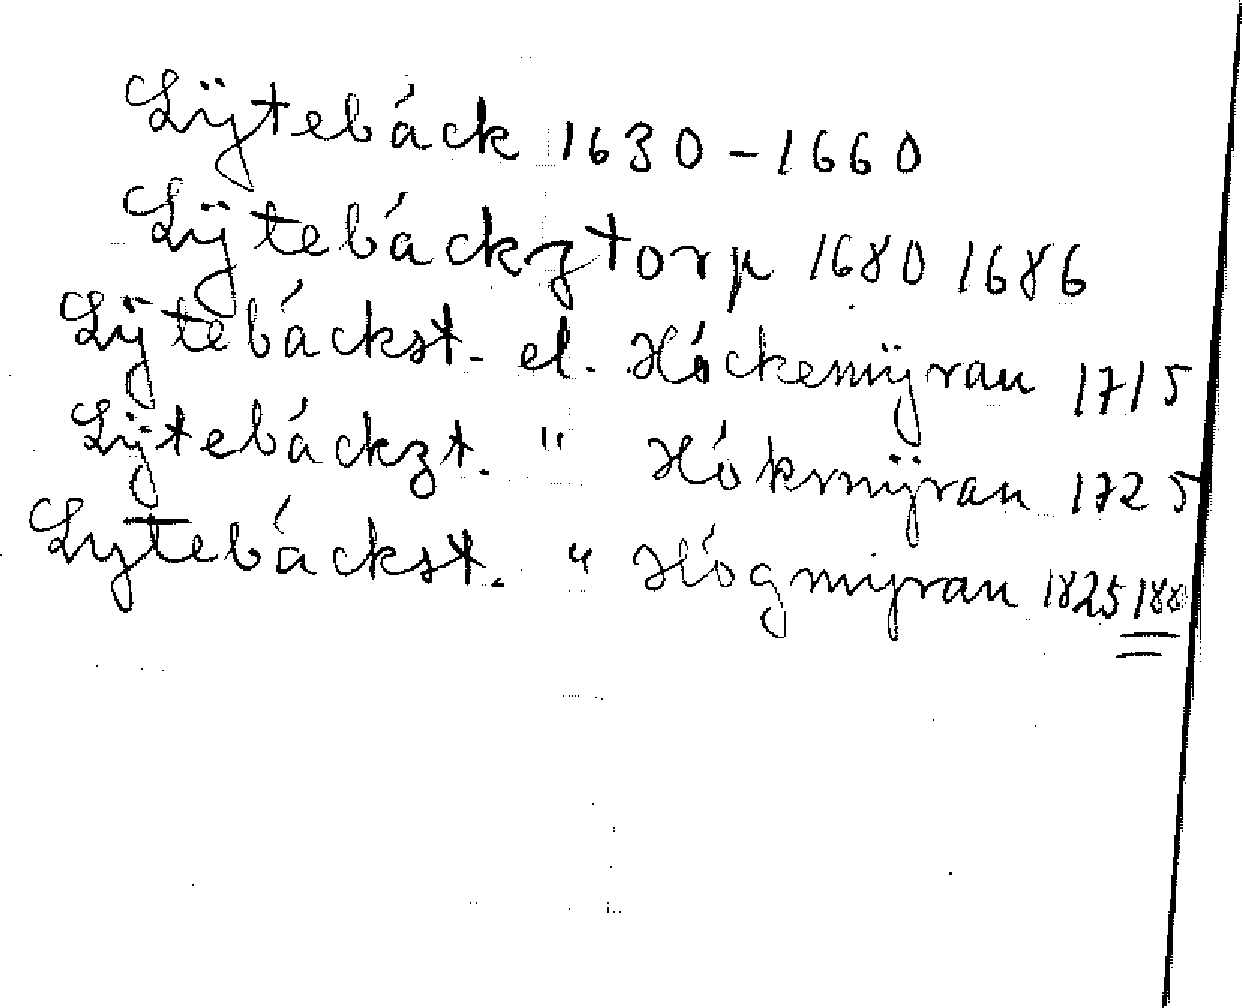 Lÿtebáck 1630-1660
Lÿtebáckztorp 1680 1686
Lÿtebáckst. el. Hóckemÿran 1715
Lÿtebáckzt. " Hókrmÿran 1725
Lytebáckst. " Hógmyran 1825 188